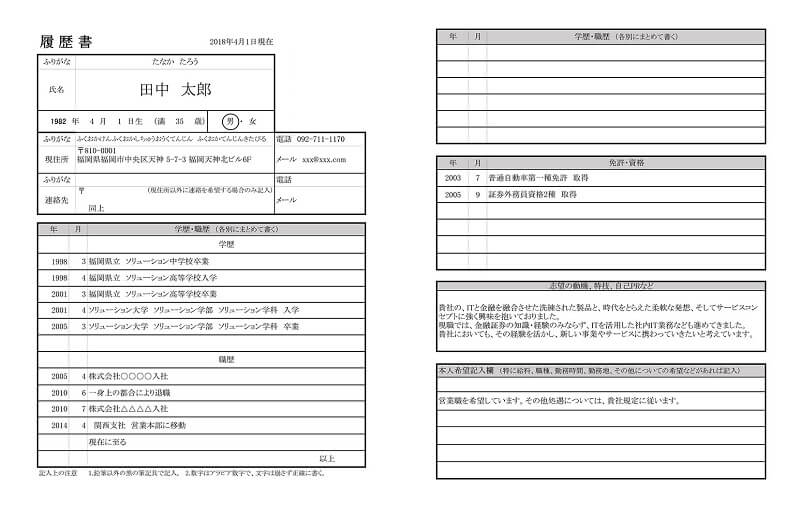 履歴書
2018年4月1日現在
ふりがな たなか たろう
氏名 田中 太郎
1982 年 4 月 1 日生 (満 35 歳) 男 ・ 女
ふりがな ふくおかけんふくおかしちゅうおうくてんじん ふくおかてんじんきたびる 電話 092-711-1170
現住所 〒810-0001
福岡県福岡市中央区天神 5-7-3 福岡天神北ビル6F
メール xxx@xxx.com
ふりがな 電話
連絡先 〒 (現住所以外に連絡を希望する場合のみ記入)
同上
メール
年 月 学歴・職歴 (各別にまとめて書く)
学歴
1998 3 福岡県立 ソリューション中学校卒業
1998 4 福岡県立 ソリューション高等学校入学
2001 3 福岡県立 ソリューション高等学校卒業
2001 4 ソリューション大学 ソリューション学部 ソリューション学科 入学
2005 3 ソリューション大学 ソリューション学部 ソリューション学科 卒業
職歴
2005 4 株式会社○○○○入社
2010 6 一身上の都合により退職
2010 7 株式会社△△△△入社
2014 4 関西支社 営業本部に移動
現在に至る
以上
記入上の注意 1.鉛筆以外の黒の筆記具で記入。 2.数字はアラビア数字で、文字は崩さず正確に書く。
年 月 学歴・職歴 (各別にまとめて書く)
年 月 免許・資格
2003 7 普通自動車第一種免許 取得
2005 9 証券外務員資格2種 取得
志望の動機、特技、自己PRなど
貴社の、ITと金融を融合させた洗練された製品と、時代をとらえた柔軟な発想、そしてサービスコン
セプトに強く興味を抱いておりました。
現職では、金融証券の知識・経験のみならず、ITを活用した社内IT業務なども進めてきました。
貴社においても、その経験を活かし、新しい事業やサービスに携わっていきたいと考えています。
本人希望記入欄 (特に給料、職種、勤務時間、勤務地、その他についての希望などがあれば記入)
営業職を希望しています。その他処遇については、貴社規定に従います。